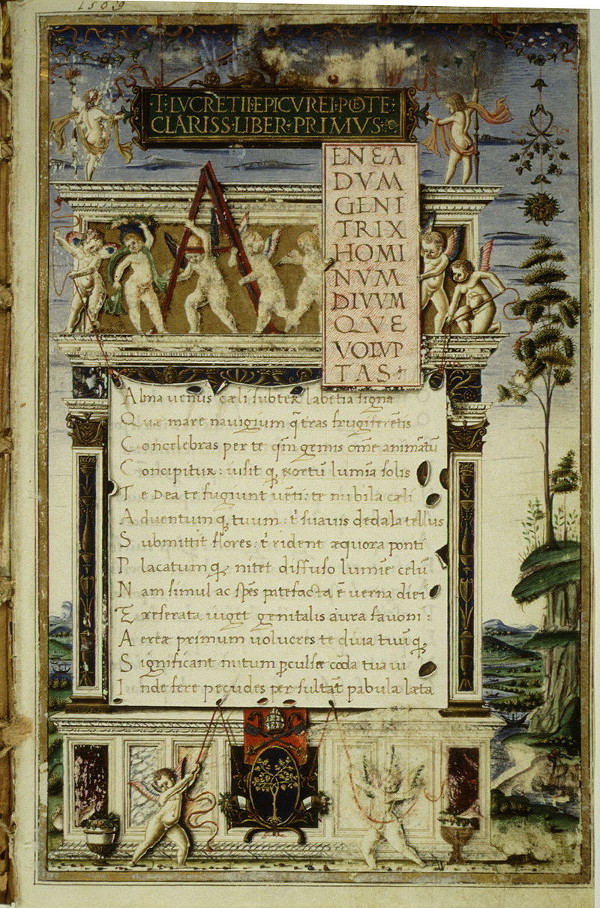 T·LVCRETII·EPICVREI·POETE·
CLARISS·LIBER·PRIMVS·
A
ENEA
DVM
GENI
TRIX
HOMI
NVM
DIVVM
QVE
VOLVP
TAS
Alma uenus cæli subter labentia signa
Quæ mare nauigium q̃ tras frugiferẽtis
Concelebras per te qm̃ genus om̃e animãtũ
Concipitur: uisit q; exortũ lumia solis
Te Dea te fugiunt uẽti: te nubila cæli
Aduentum q; tuum: t̃ suauis dedala tellus
Submittit flores: t̃ rident æquora ponti
Placatum q; nitet diffuso lumie celũ
Nam simul ac spẽs patefacta ẽ uerna diei
Et reserata uiget genitalis aura fauoni:
Aereæ primum uolucres te diua tuũ q;
Significant initum pculsæ corda tua ui
Inde fere pecudes per sultãt pabula læta